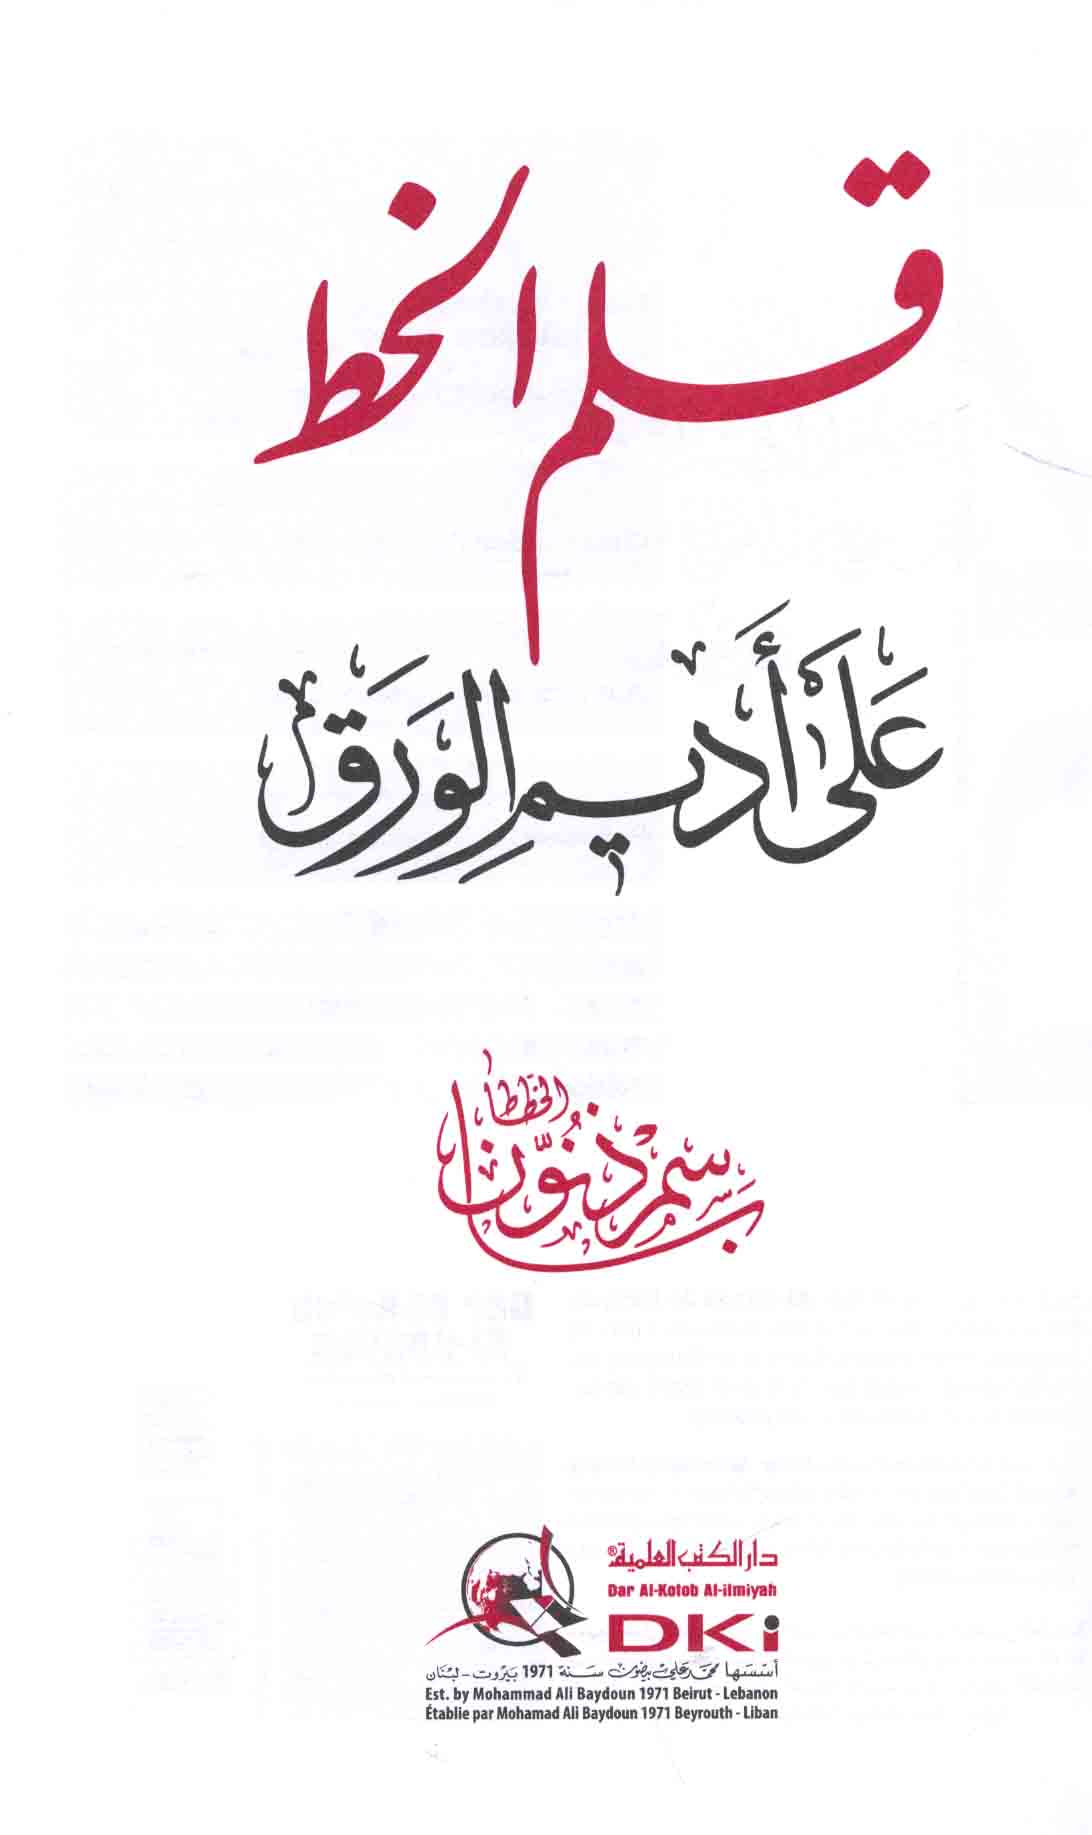 قلم الخط
عَلَىٰ أَدِيمِ الوَرَق
الخطاط
باسم ذنُّون
دار الكتب العلمية®
Dar Al-Kotob Al-ilmiyah
DKi
أسسها محمد علي بيضون سنة 1971 بيروت - لبنان
Est. by Mohammad Ali Baydoun 1971 Beirut - Lebanon
Établie par Mohamad Ali Baydoun 1971 Beyrouth - Liban